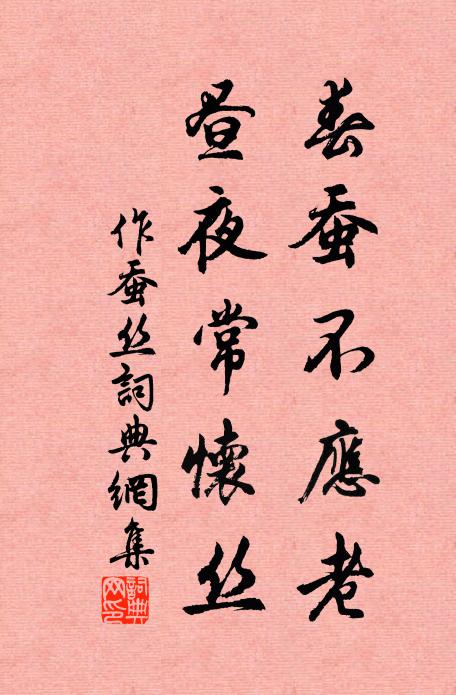 春蚕不應老
昼夜常懷丝
作蚕丝詞典網集
詞典
网印